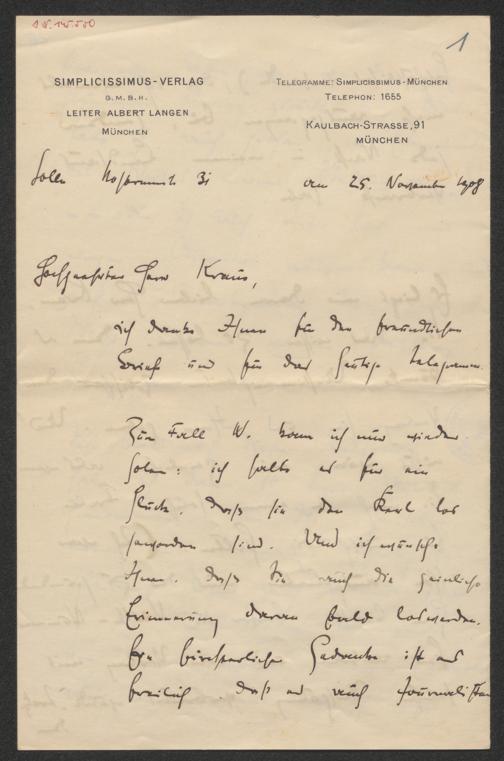 I.N. 145.550
1
SIMPLICISSIMUS-VERLAG
G.M.B.H.
LEITER ALBERT LANGEN
MÜNCHEN
TELEGRAMME: SIMPLICISSIMUS-MÜNCHEN
TELEPHON: 1655
KAULBACH-STRASSE, 91
MÜNCHEN
Solln 31
den 25. November 1908
Hochgeehrter Herr Kraus,
ich danke Ihnen für den freundlichen
Brief und für das heutige Telegramm.
Zum Fall W. kann ich nur wieder
holen: ich halte es für ein
Glück, dass Sie den Kerl los
geworden sind. Und ich wünsche
Ihnen, dass Sie auch die peinliche
Erinnerung daran bald loswerden.
Ein Gedanke ist es
freilich, dass es auch Journalisten